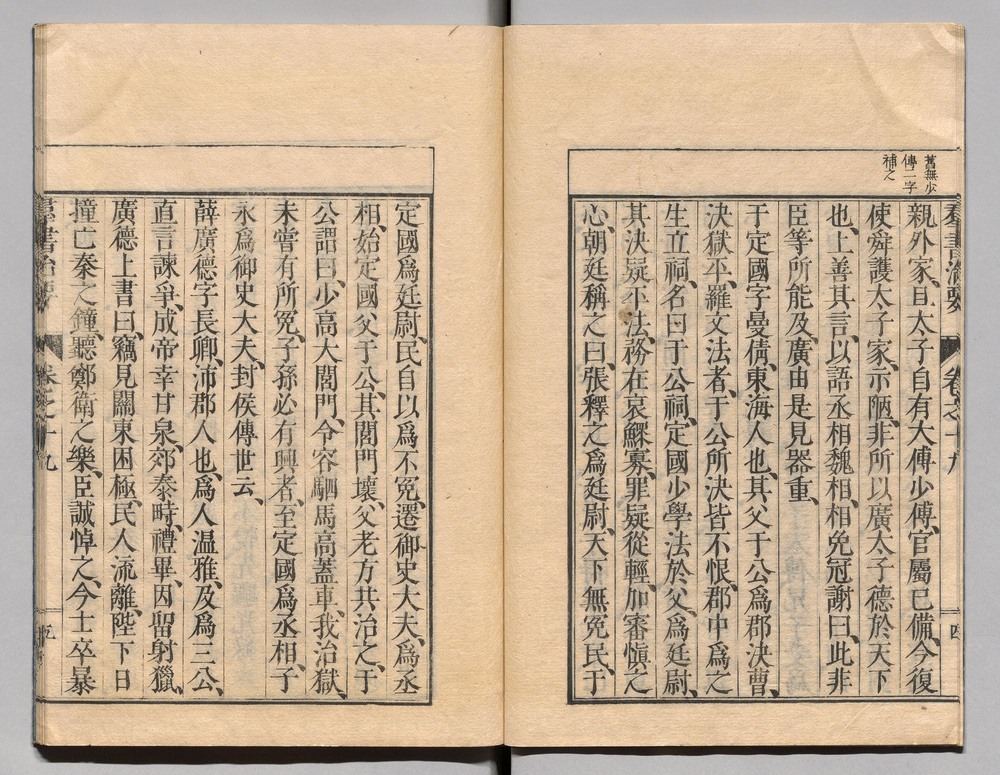 舊無少
傅二字
補之
羣書治要 卷之十九 四
親外家且太子自有大傅少傅官屬已備今復
使舜護太子家示陋非所以廣太子德於天下
也上善其言以語丞相魏相相免冠謝曰此非
臣等所能及廣由是見器重
于定國字曼倩東海人也其父于公爲郡決曹
決獄平羅文法者于公所決皆不恨郡中爲之
生立祠名曰于公祠定國少學法於父爲廷尉
其決疑平法務在哀鰥寡罪疑從輕加審愼之
心朝廷稱之曰張釋之爲廷尉天下無冤民于
定國爲廷尉民自以爲不冤遷御史大夫爲丞
相始定國父于公其閭門壞父老方共治之于
公謂曰少高大閭門令容駟馬高蓋車我治獄
未嘗有所冤子孫必有興者至定國爲丞相子
永爲御史大夫封侯傳世云
薛廣德字長卿沛郡人也爲人温雅及爲三公
直言諫爭成帝幸甘泉郊泰畤禮畢因留射獵
廣德上書曰竊見關東困極民人流離陛下日
撞亡秦之鐘聽鄭衛之樂臣誠悼之今士卒暴
羣書治要 卷之十九 五